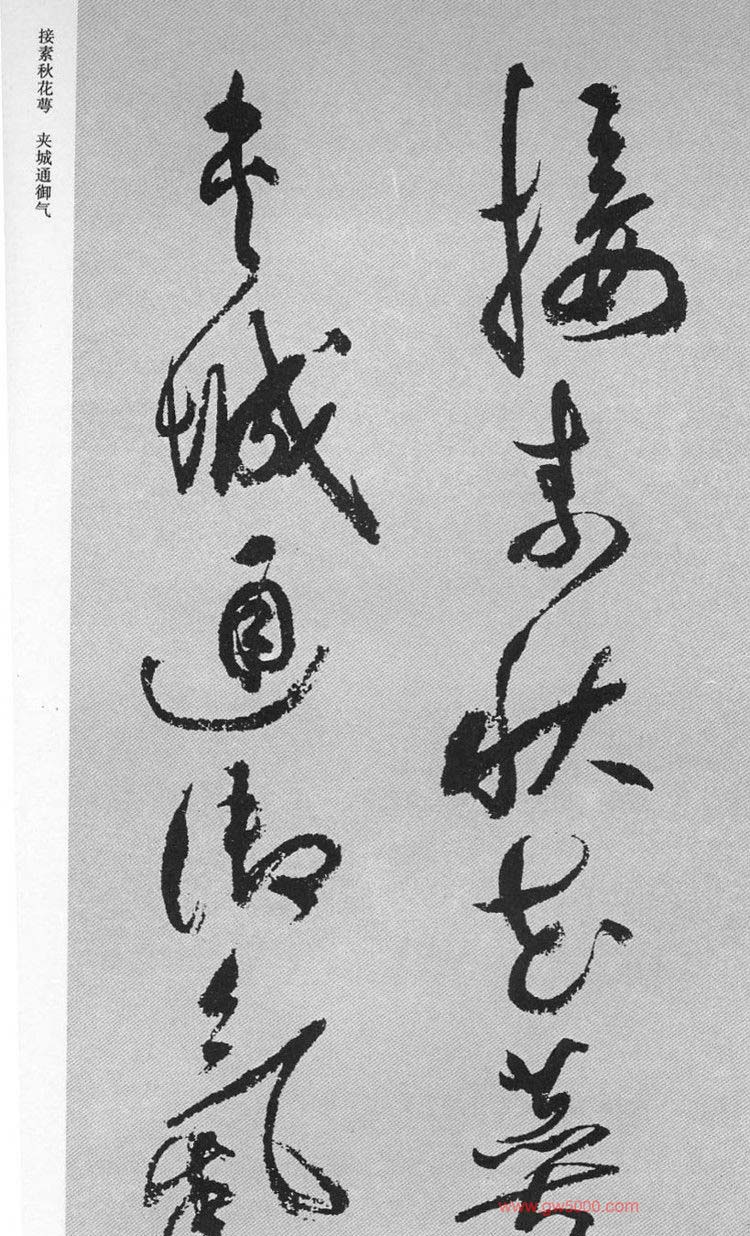 接素秋花萼
夹城通御氣
接素秋花萼 夹城通御气
www.gw5000.com